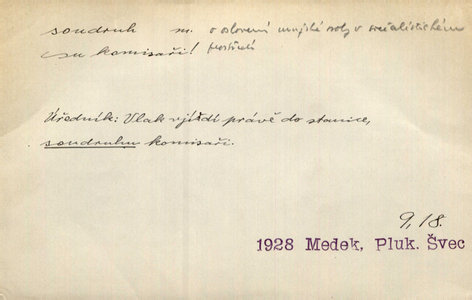 soudruh m. v oslovení mužské osoby v socialistickém
su komisaři! prostředí
Úředník: Vlak vjíždí právě do stanice,
soudruhu komisaři.
9, 18.
1928 Medek, Pluk. Švec